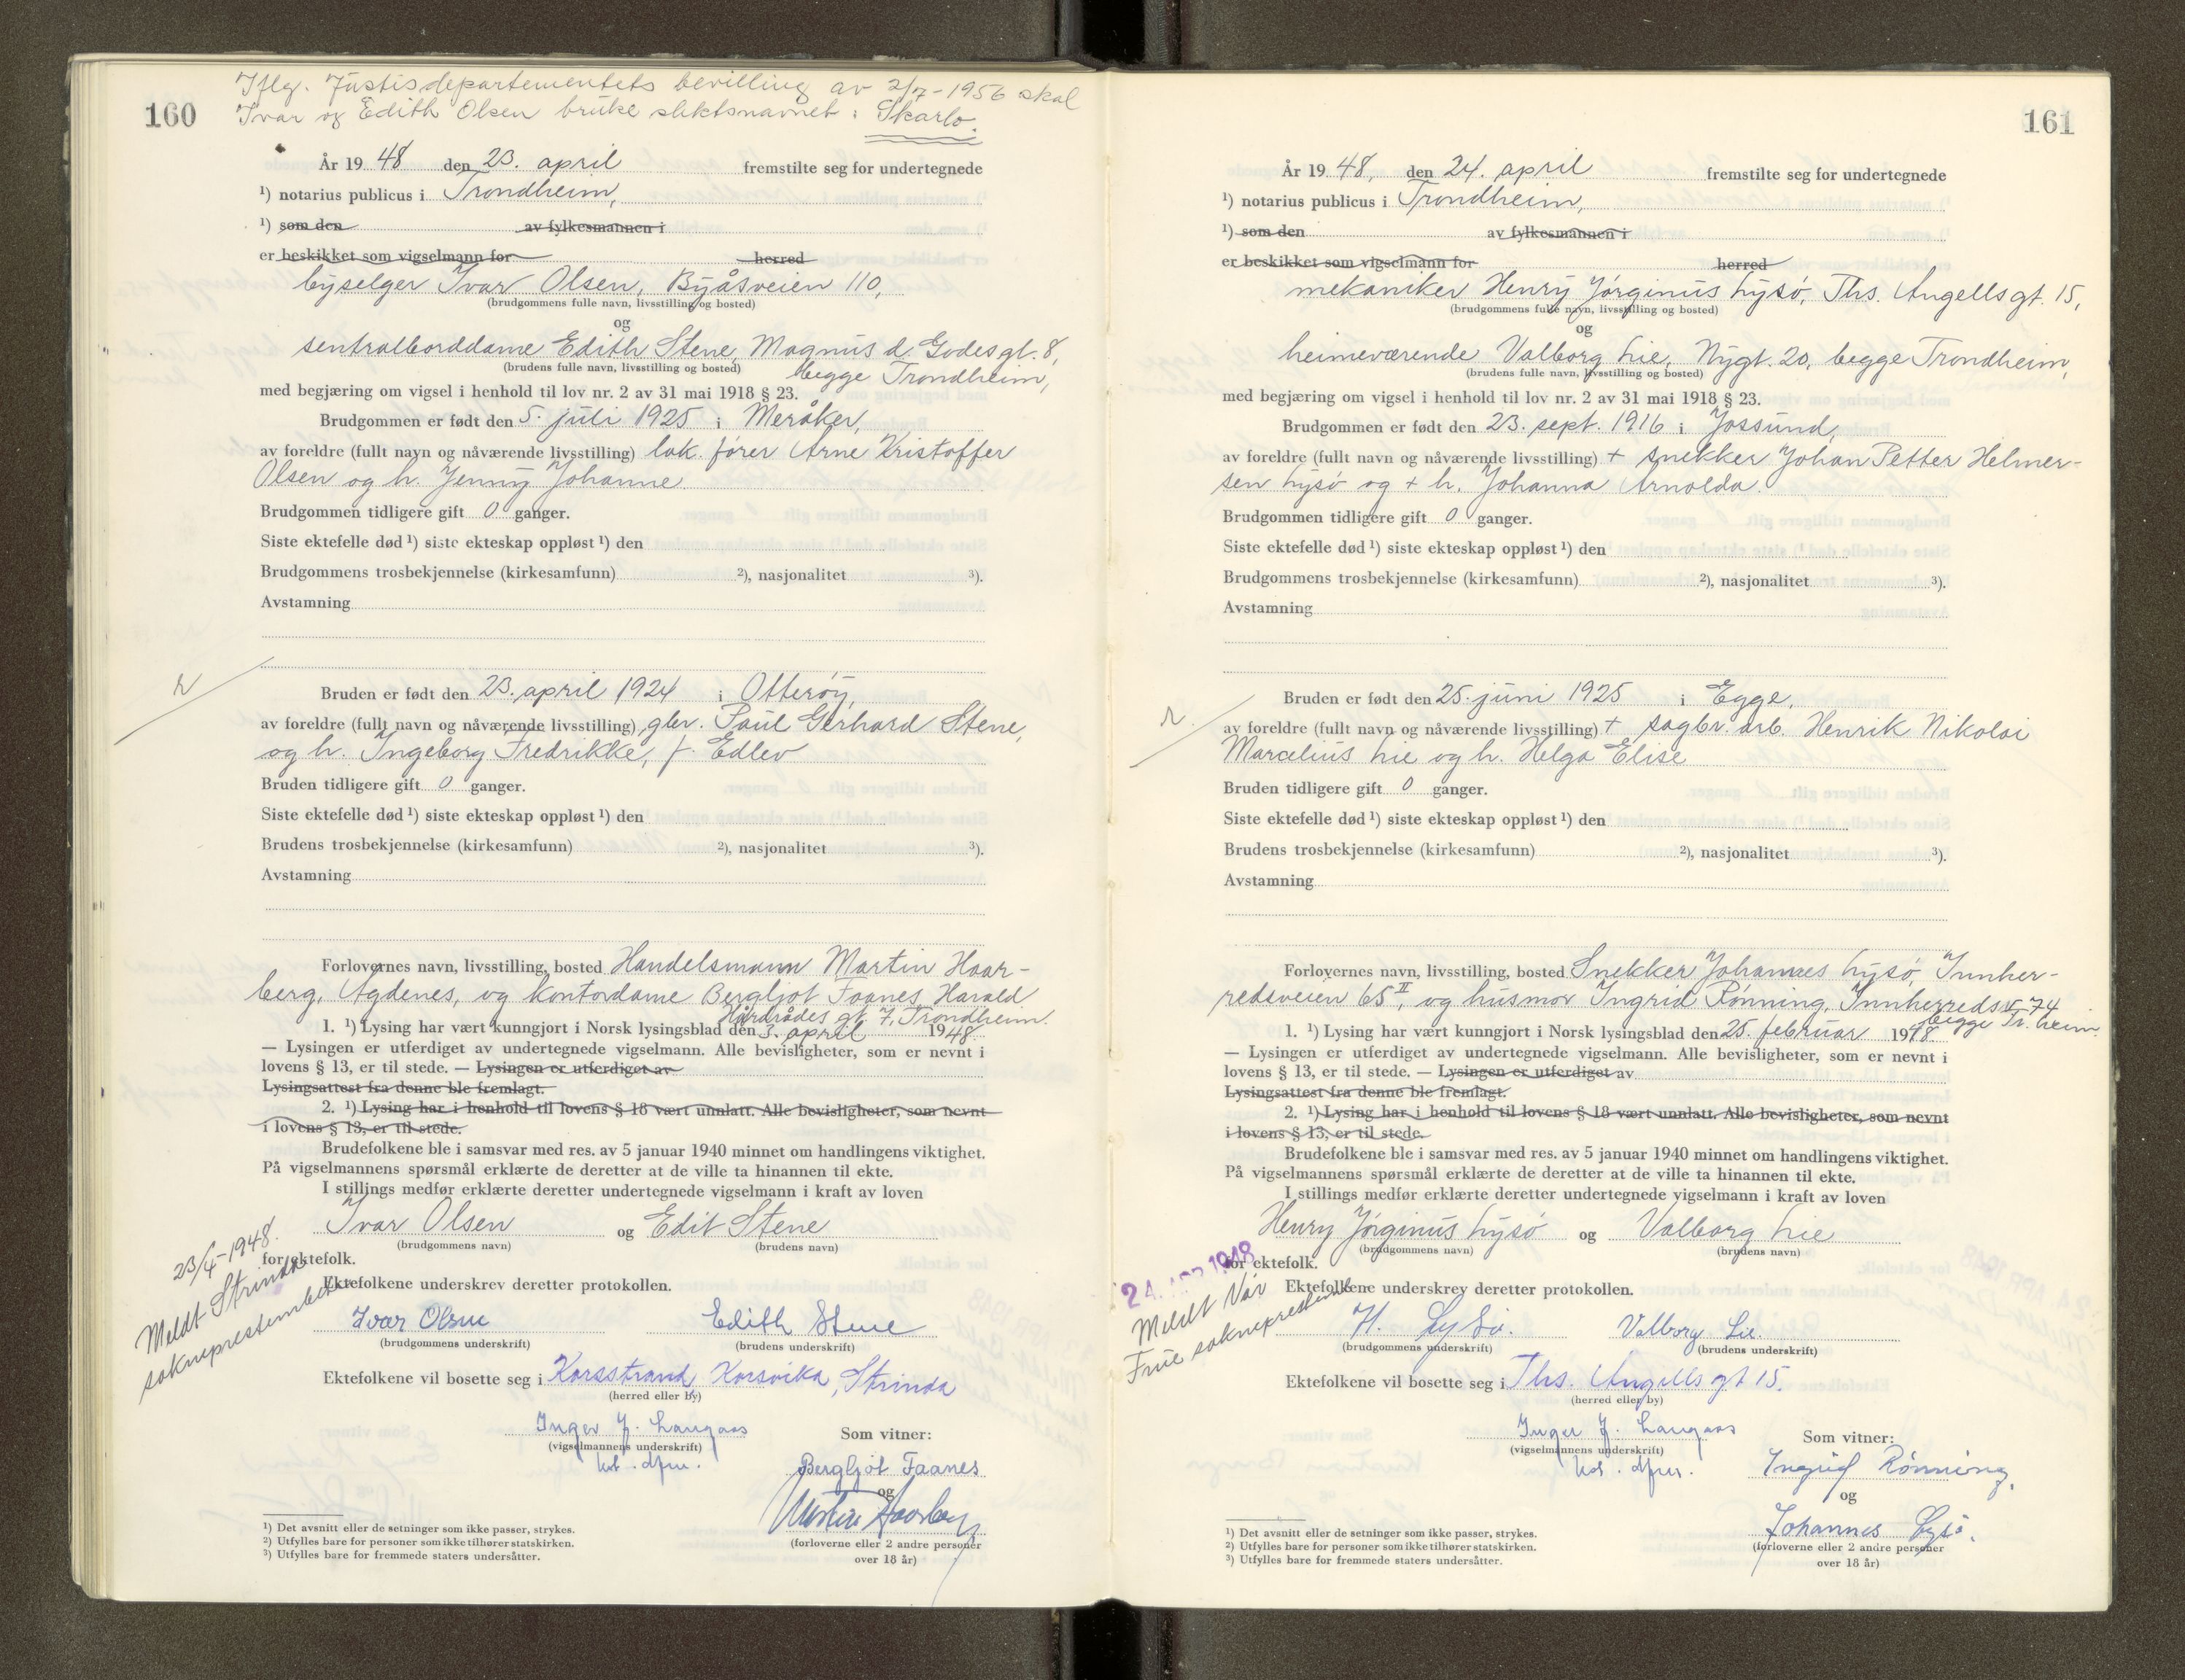 160
Iflg. Justisdepartementets bevilling av 2/7-1956 skal
Ivar og Edith Olsen bruke slektsnavnet: Skarbo.
År 1948 den 23. april fremstilte seg for undertegnede
¹) notarius publicus i Trondheim,
¹) som den av fylkesmannen i
er beskikket som vigselmann for herred
byselger Ivar Olsen, Byåsveien 110,
(brudgommens fulle navn, livsstilling og bosted)
og
sentralborddame Edith Stene, Magnus d. Godesgt. 8,
(brudens fulle navn, livsstilling og bosted) begge Trondheim,
med begjæring om vigsel i henhold til lov nr. 2 av 31 mai 1918 § 23.
Brudgommen er født den 5. juli 1925 i Meråker,
av foreldre (fullt navn og nåværende livsstilling) lok. fører Arne Kristoffer
Olsen og h. Jenny Johanne
Brudgommen tidligere gift 0 ganger.
Siste ektefelle død ¹) siste ekteskap oppløst ¹) den
Brudgommens trosbekjennelse (kirkesamfunn) ²), nasjonalitet ³).
Avstamning
Bruden er født den 23. april 1924 i Otterøy,
av foreldre (fullt navn og nåværende livsstilling) gbr. Paul Gerhard Stene,
og h. Ingeborg Fredrikke, f. Edlev
Bruden tidligere gift 0 ganger.
Siste ektefelle død ¹) siste ekteskap oppløst ¹) den
Brudens trosbekjennelse (kirkesamfunn) ²), nasjonalitet ³).
Avstamning
Forlovernes navn, livsstilling, bosted Handelsmann Martin Haar-
berg, Agdenes, og kontordame Bergljot Faanes, Harald
Hårdrådes gt. 7, Trondheim.
1. ¹) Lysing har vært kunngjort i Norsk lysingsblad den 3. april 1948
— Lysingen er utferdiget av undertegnede vigselmann. Alle bevisligheter, som er nevnt i
lovens § 13, er til stede. — Lysingen er utferdiget av
Lysingsattest fra denne ble fremlagt.
2. ¹) Lysing har i henhold til lovens § 18 vært unnlatt. Alle bevisligheter, som nevnt
i lovens § 13, er til stede.
Brudefolkene ble i samsvar med res. av 5 januar 1940 minnet om handlingens viktighet.
På vigselmannens spørsmål erklærte de deretter at de ville ta hinannen til ekte.
I stillings medfør erklærte deretter undertegnede vigselmann i kraft av loven
Ivar Olsen og Edit Stene
(brudgommens navn) (brudens navn)
for ektefolk.
23/4-1948.
Meldt Strinda
sokneprestembete
Ektefolkene underskrev deretter protokollen.
Ivar Olsen Edith Stene
(brudgommens underskrift) (brudens underskrift)
Ektefolkene vil bosette seg i Korsstrand Korsvika, Strinda
(herred eller by)
Inger J. Langaas
(vigselmannens underskrift)
Som vitner:
Bergljot Faanes
og
Martin Haarberg
(forloverne eller 2 andre personer
over 18 år)
¹) Det avsnitt eller de setninger som ikke passer, strykes.
²) Utfylles bare for personer som ikke tilhører statskirken.
³) Utfylles bare for fremmede staters undersåtter.
161
År 1948, den 24. april fremstilte seg for undertegnede
¹) notarius publicus i Trondheim,
¹) som den av fylkesmannen i
er beskikket som vigselmann for herred
mekaniker Henry Jørginus Lysø, Ths. Angellsgt. 15,
(brudgommens fulle navn, livsstilling og bosted)
og
heimeværende Valborg Lie, Nygt. 20, begge Trondheim,
(brudens fulle navn, livsstilling og bosted)
med begjæring om vigsel i henhold til lov nr. 2 av 31 mai 1918 § 23.
Brudgommen er født den 23. sept. 1916 i Jøssund,
av foreldre (fullt navn og nåværende livsstilling) + snekker Johan Petter Helmer-
sen Lysø og + h. Johanna Arnolda.
Brudgommen tidligere gift 0 ganger.
Siste ektefelle død ¹) siste ekteskap oppløst ¹) den
Brudgommens trosbekjennelse (kirkesamfunn) ²), nasjonalitet ³).
Avstamning
Bruden er født den 25. juni 1925 i Egge,
av foreldre (fullt navn og nåværende livsstilling) + sagbr. arb. Henrik Nikolai
Marcelius Lie og h. Helga Elise
Bruden tidligere gift 0 ganger.
Siste ektefelle død ¹) siste ekteskap oppløst ¹) den
Brudens trosbekjennelse (kirkesamfunn) ²), nasjonalitet ³).
Avstamning
Forlovernes navn, livsstilling, bosted Snekker Johannes Lysø, Innher-
redsveien 65 II, og husmor Ingrid Rønning, Innherredsv. 74
begge Tr.heim.
1. ¹) Lysing har vært kunngjort i Norsk lysingsblad den 25. februar 1948
— Lysingen er utferdiget av undertegnede vigselmann. Alle bevisligheter, som er nevnt i
lovens § 13, er til stede. — Lysingen er utferdiget av
Lysingsattest fra denne ble fremlagt.
2. ¹) Lysing har i henhold til lovens § 18 vært unnlatt. Alle bevisligheter, som nevnt
i lovens § 13, er til stede.
Brudefolkene ble i samsvar med res. av 5 januar 1940 minnet om handlingens viktighet.
På vigselmannens spørsmål erklærte de deretter at de ville ta hinannen til ekte.
I stillings medfør erklærte deretter undertegnede vigselmann i kraft av loven
Henry Jørginus Lysø og Valborg Lie
(brudgommens navn) (brudens navn)
for ektefolk.
24. APR 1948
Meldt Vår
Frue sokneprestemb.
Ektefolkene underskrev deretter protokollen.
H. Lysø. Valborg Lie.
(brudgommens underskrift) (brudens underskrift)
Ektefolkene vil bosette seg i Ths. Angells gt 15.
(herred eller by)
Inger J. Langaas
(vigselmannens underskrift)
Som vitner:
Ingrid Rønning,
og
Johannes Lysø.
(forloverne eller 2 andre personer
over 18 år)
¹) Det avsnitt eller de setninger som ikke passer, strykes.
²) Utfylles bare for personer som ikke tilhører statskirken.
³) Utfylles bare for fremmede staters undersåtter.